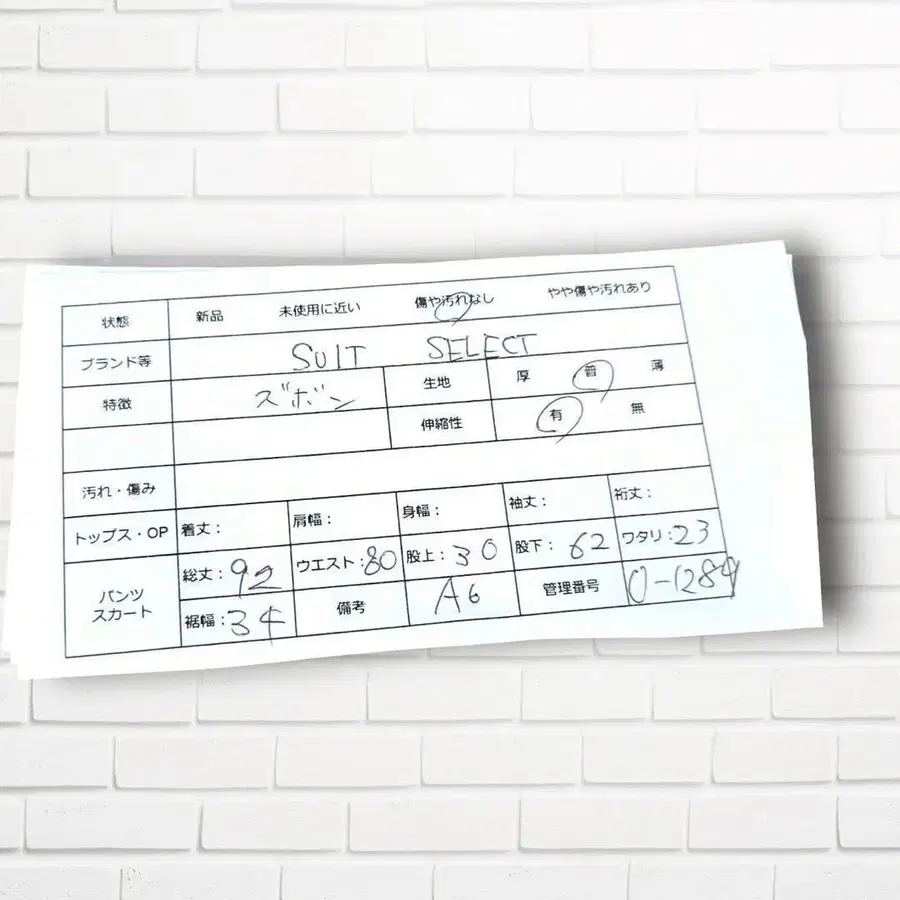 状態 新品 未使用に近い 傷や汚れなし やや傷や汚れあり
ブランド等 SUIT SELECT
特徴 ズボン 生地 厚 普 薄
伸縮性 有 無
汚れ・傷み
トップス・OP 着丈: 肩幅: 身幅: 袖丈: 裄丈:
パンツ スカート 総丈:92 ウエスト:80 股上:30 股下:62 ワタリ:23
裾幅:34 備考 A6 管理番号 0-1284